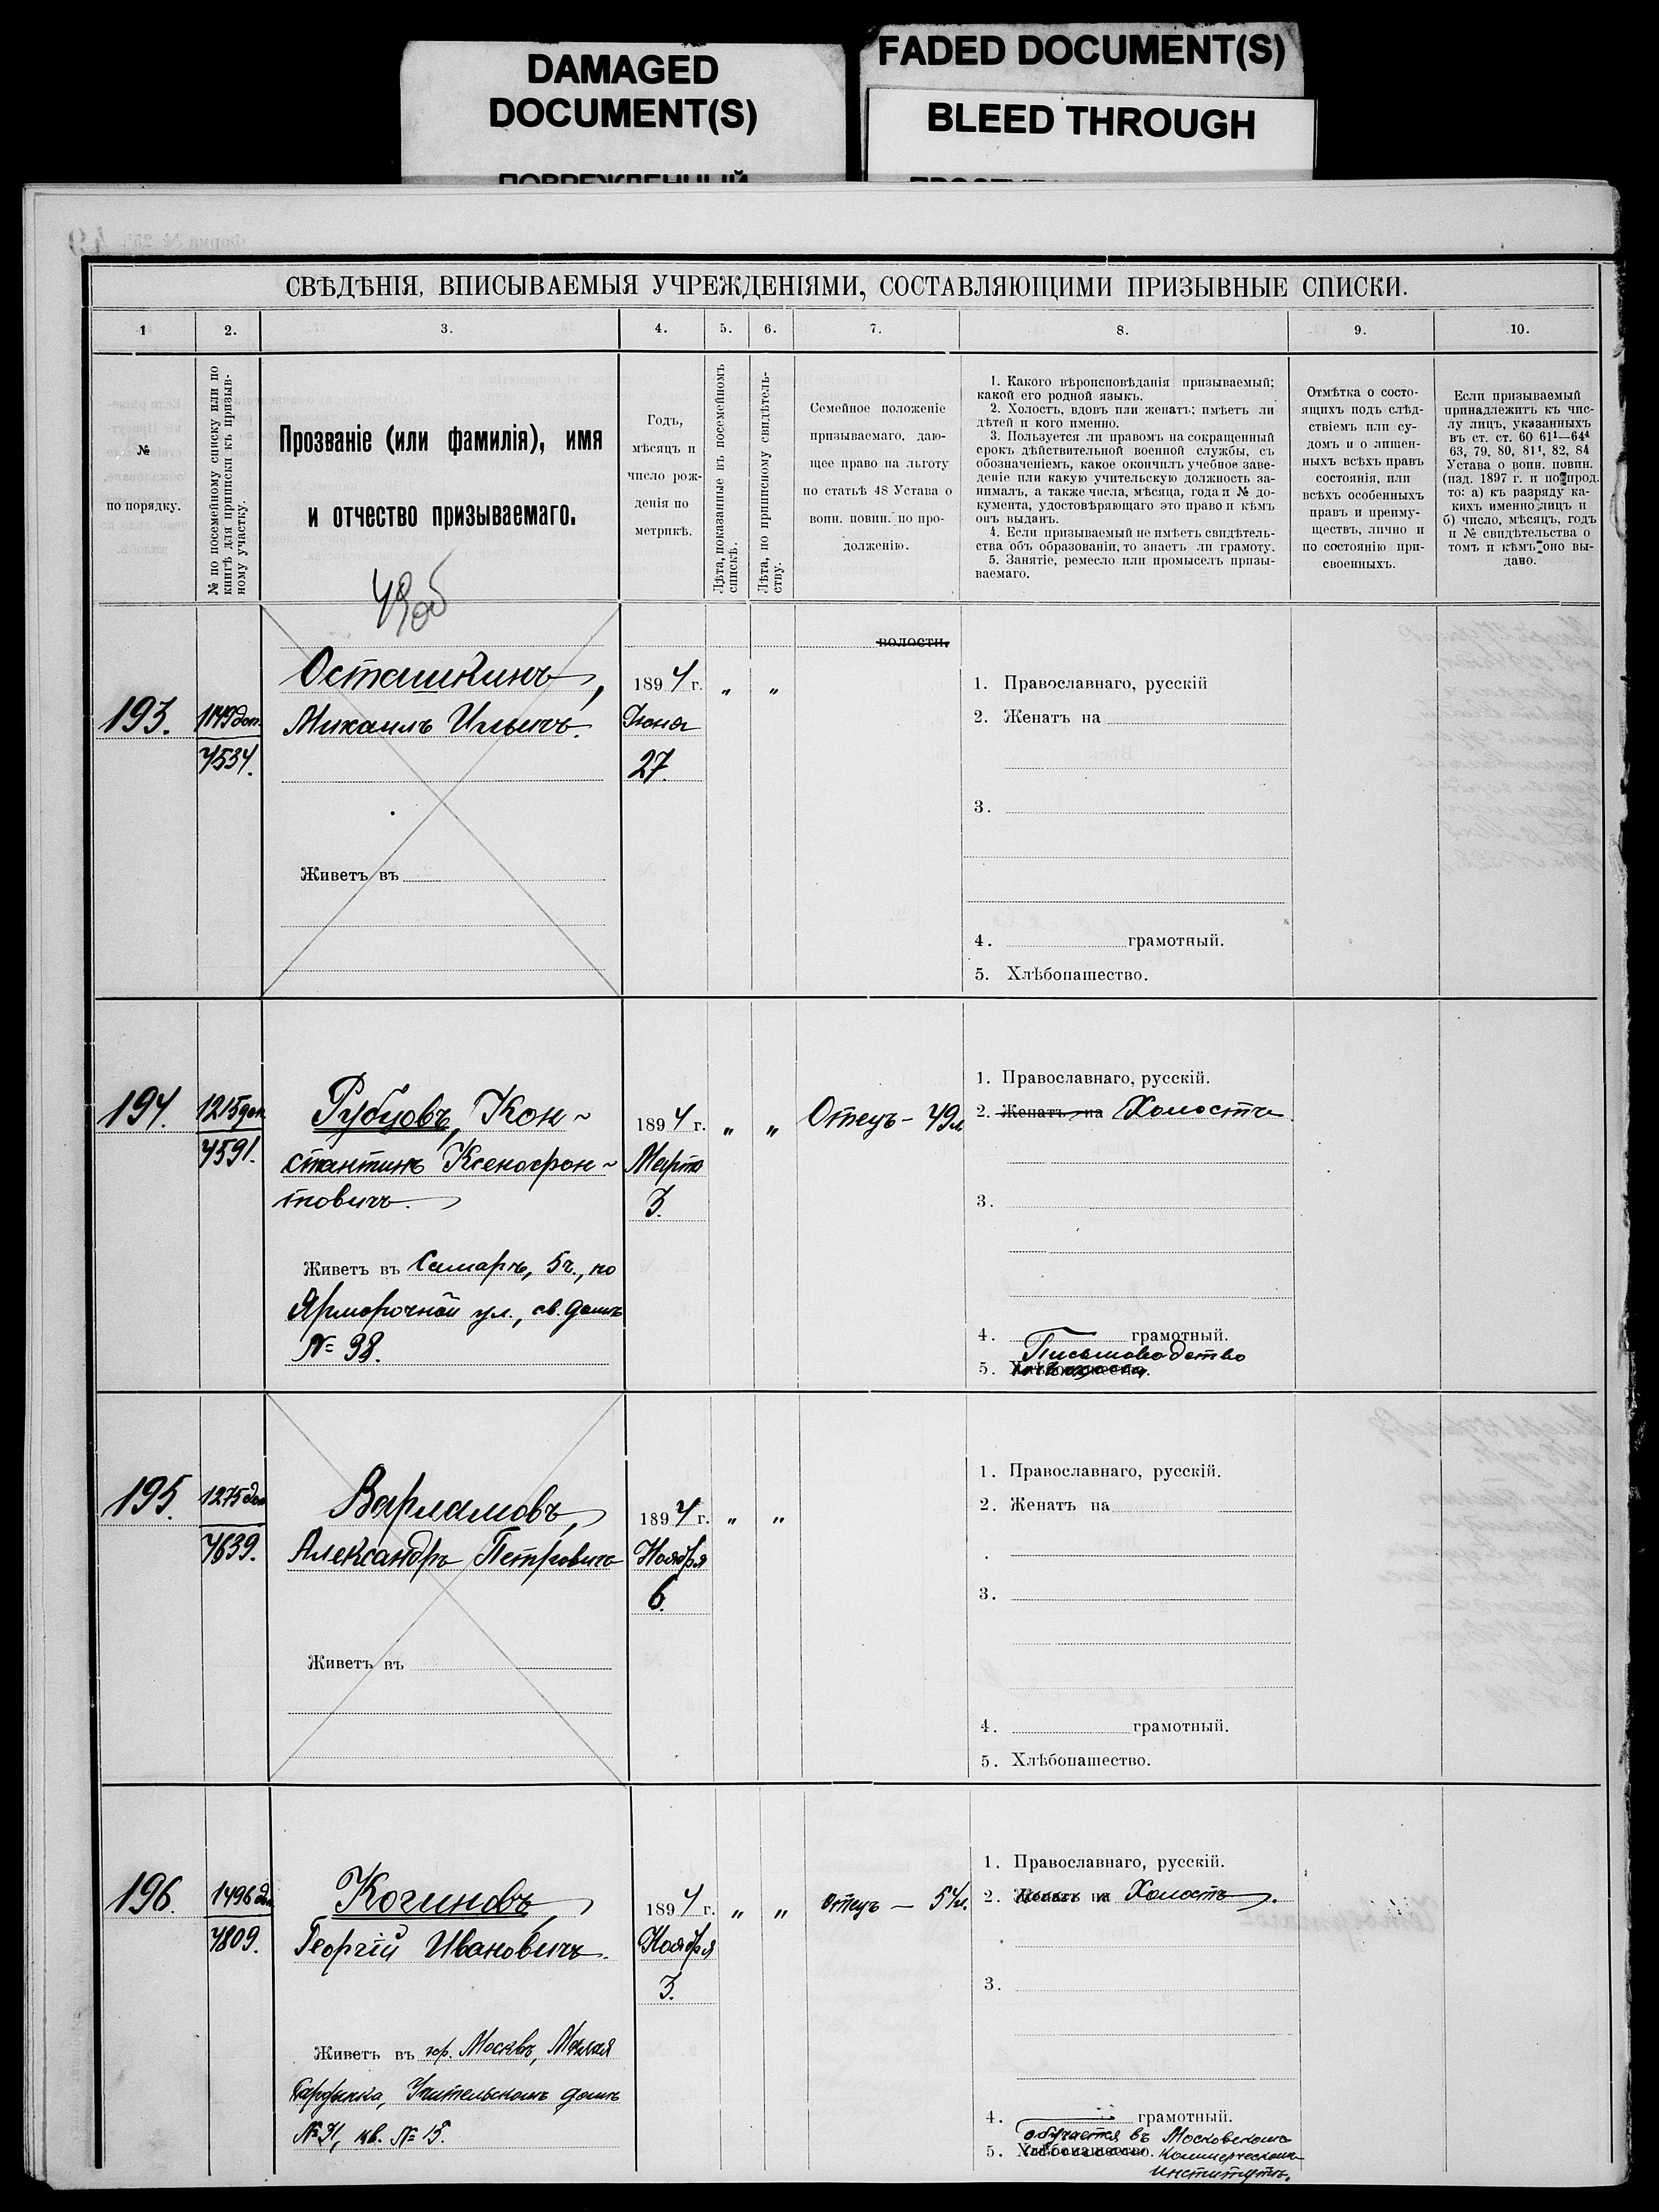 DAMAGED
DOCUMENT(S)
FADED DOCUMENT(S)
BLEED THROUGH
СВѢДѢНІЯ, ВПИСЫВАЕМЫЯ УЧРЕЖДЕНІЯМИ, СОСТАВЛЯЮЩИМИ ПРИЗЫВНЫЕ СПИСКИ.
1 2. 3. 4. 5. 6. 7. 8. 9. 10.
№
по порядку.
№ по посемейному списку или по
книгѣ для приписки къ призыв-
ному участку.
Прозваніе (или фамилія), имя
и отчество призываемаго.
Годъ,
мѣсяцъ и
число рож-
денія по
метрикѣ.
Лѣта, показанные въ посемейномъ
спискѣ.
Лѣта, по приписному свидѣтель-
ству.
Семейное положеніе
призываемаго, даю-
щее право на льготу
по статьѣ 48 Устава о
воин. повин. по про-
долженію.
1. Какого вѣроисповѣданія призываемый;
какой его родной языкъ.
2. Холостъ, вдовъ или женатъ; имѣетъ ли
дѣтей и кого именно.
3. Пользуется ли правомъ на сокращенный
срокъ дѣйствительной военной службы, съ
обозначеніемъ, какое окончилъ учебное заве-
деніе или какую учительскую должность за-
нималъ, а также числа, мѣсяца, года и № до-
кумента, удостовѣряющаго это право и кѣмъ
онъ выданъ.
4. Если призываемый не имѣетъ свидѣтель-
ства объ образованіи, то знаетъ ли грамоту.
5. Занятіе, ремесло или промыселъ призы-
ваемаго.
Отмѣтка о состо-
ящихъ подъ слѣд-
ствіемъ или су-
домъ и о лишен-
ныхъ всѣхъ правъ
состоянія, или
всѣхъ особенныхъ
правъ и преиму-
ществъ, лично и
по состоянію при-
своенныхъ.
Если призываемый
принадлежитъ къ чис-
лу лицъ, указанныхъ
въ ст. ст. 60 61¹—64⁴
63, 79, 80, 81¹, 82, 84
Устава о воин. повин.
(изд. 1897 г. и по прод.
то: а) къ разряду ка-
кихъ именно лицъ и
б) число, мѣсяцъ, годъ
и № свидѣтельства о
томъ и кѣмъ оно вы-
дано.
49об
волости.
193. 1149 доп. 4534.
Осташкинъ,
Михаилъ Ильичъ.
Живетъ въ
1894 г. " "
Іюня
27.
1. Православнаго, русскій
2. Женатъ на
3.
4. грамотный.
5. Хлѣбопашество.
194. 1215 доп 4591.
Рубцовъ, Кон-
стантинъ Ксенофон-
товичъ.
Живетъ въ Самарѣ, 5ч., по
Ярморочной ул., св. домъ
№ 98.
1894 г. " "
Марта
3.
Отецъ - 49л
1. Православнаго, русскій.
2. Женатъ на Холостъ
3.
4. грамотный.
Письмоводство
5. Хлѣбопашество.
195. 1275 доп 4639.
Варламовъ,
Александръ Петровичъ
Живетъ въ
1894 г. " "
Ноября
6.
1. Православнаго, русскій.
2. Женатъ на
3.
4. грамотный.
5. Хлѣбопашество.
196. 1496 доп 4809.
Когиновъ,
Георгій Ивановичъ.
Живетъ въ гор. Москвѣ, Малая
Учительскомъ домѣ
№ 31, кв. № 15.
1894 г. " "
Ноября
3.
Отецъ — 54л.
1. Православнаго, русскій.
2. Женатъ на Холостъ.
3.
4. грамотный.
обучается въ Московскомъ
5. Хлѣбопашество. Коммерческомъ
институтѣ.